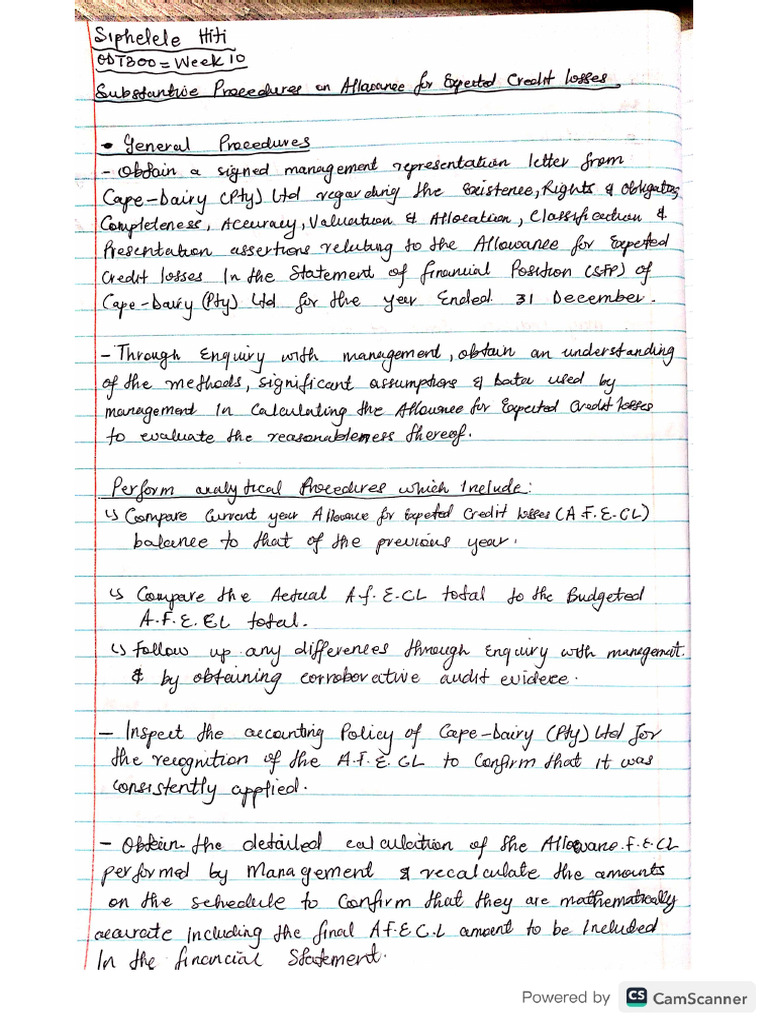 Siphelele Hiti
ODT300 = Week 10
Substantive Procedures on Allowance for Expected Credit losses
• General Procedures
- Obtain a signed management representation letter from
Cape-Dairy (Pty) Ltd regarding the Existence, Rights & Obligations,
Completeness, Accuracy, Valuation & Allocation, Classification &
Presentation assertions relating to the Allowance for Expected
Credit losses In the Statement of financial Position (SFP) of
Cape-Dairy (Pty) Ltd for the year Ended 31 December.
- Through Enquiry with management, obtain an understanding
of the methods, significant assumptions & Data used by
management In Calculating the Allowance for Expected Credit losses
to evaluate the reasonableness thereof.
Perform analytical Procedures which Include:
↳ Compare Current year Allowance for Expected Credit losses (A.F.E.CL)
balance to that of the previous year.
↳ Compare the Actual A.f.E.CL total to the Budgeted
A.F.E.CL total.
↳ Follow up any differences through Enquiry with management.
& by obtaining corroborative audit evidece.
- Inspect the accounting Policy of Cape-Dairy (Pty) Ltd for
the recognition of the A.F.E.CL to Confirm that it was
consistently applied.
- Obtain the detailed calculation of the Allowane.F.E.CL
performed by Management & recalculate the amounts
on the schedule to Confirm that they are mathematically
accurate including the final A.F.E.C.L amount to be Included
In the financial Statement.
Powered by CS CamScanner